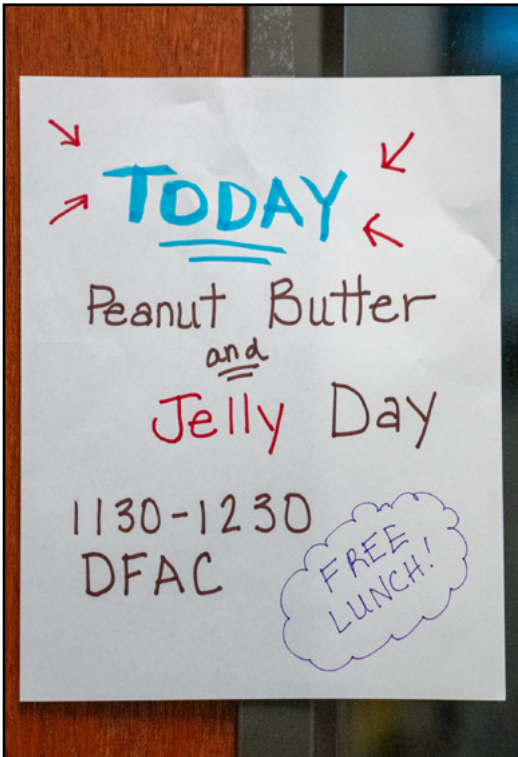 TODAY
Peanut Butter
and
Jelly Day
1130-1230
DFAC
FREE
LUNCH!